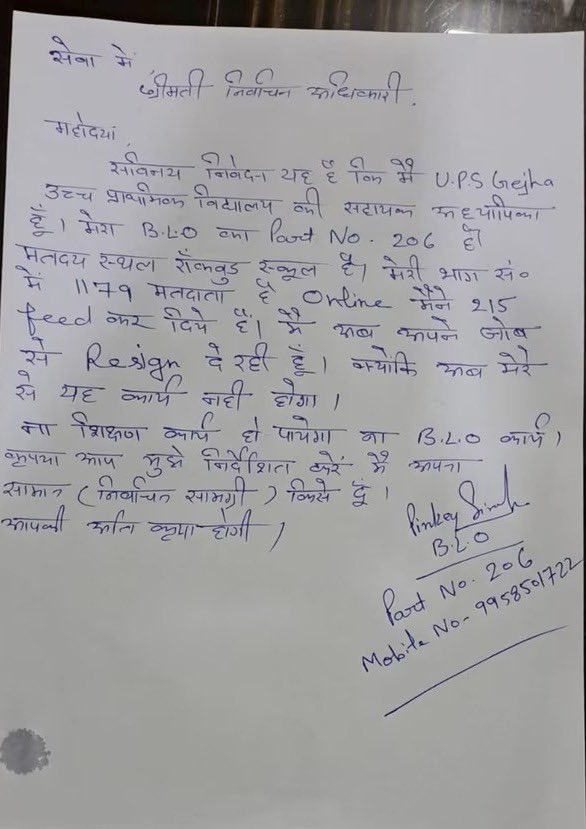 सेवा में
श्रीमती निर्वाचन अधिकारी.
महोदया,
सविनय निवेदन यह है कि मैं U.P.S Gejha
उच्च प्राथमिक विद्यालय की सहायक अध्यापिका
हूँ। मेरा B.L.O का Part No. 206 है।
मतदय स्थल रॉकवुड स्कूल है। मेरी भाग सं०
में 1179 मतदाता है Online मैंने 215
feed कर दिये हैं। मैं अब अपने जोब
से Resign दे रही हूँ। क्योकि अब मेरे
से यह कार्य नही होगा।
ना शिक्षण कार्य हो पायेगा ना B.L.O कार्य।
कृपया आप मुझे निर्देशित करें मैं अपना
सामान (निर्वाचन सामग्री) किसे दूं।
आपकी अति कृपा होगी।
Pinkey Singh
B.L.O
Part No. 206
Mobile No- 9958501722